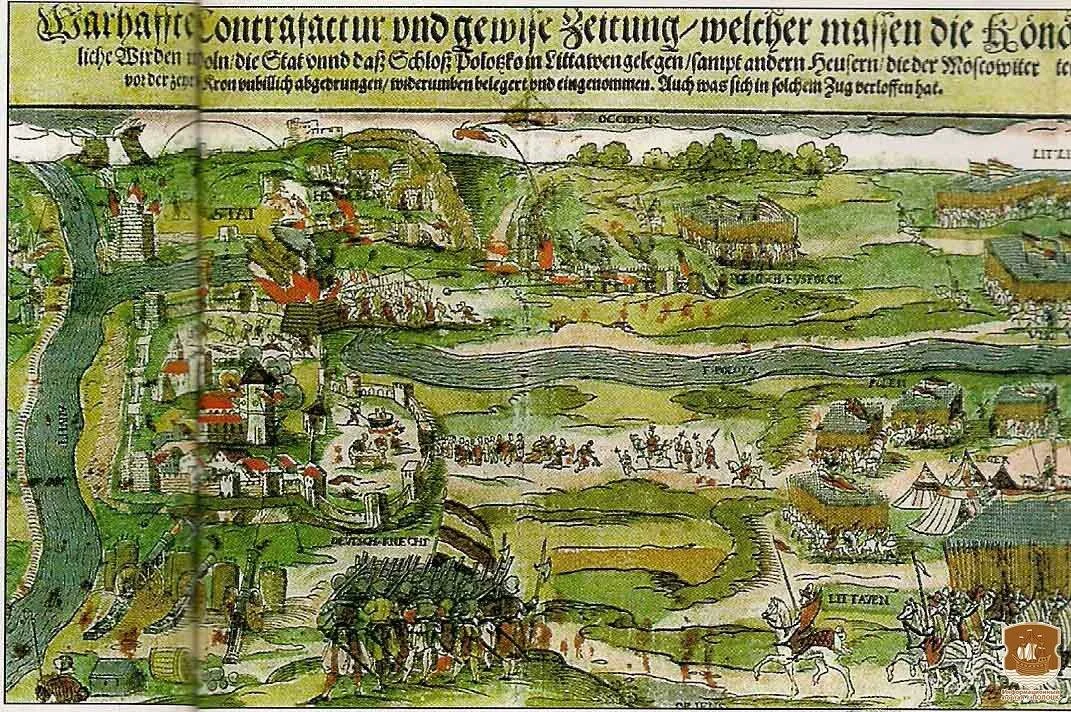 Warhaffte Contrafactur vnd gewise Zeitung/welcher massen die Könd
liche Wirden poln/die Stat vnnd daß Schloß Polotzko in Littawen gelegen/sampt andern Heusern/die der Moscowiter
vor der Kron vnbillich abgedrungen/widerumben belegert vnd eingenommen. Auch was sich in solchem Zug verloffen hat.
OCCIDENS
STAT
F. POLOTA
POLEN
DEUTSCH KNECHT
LITTAVEN
ORIENS